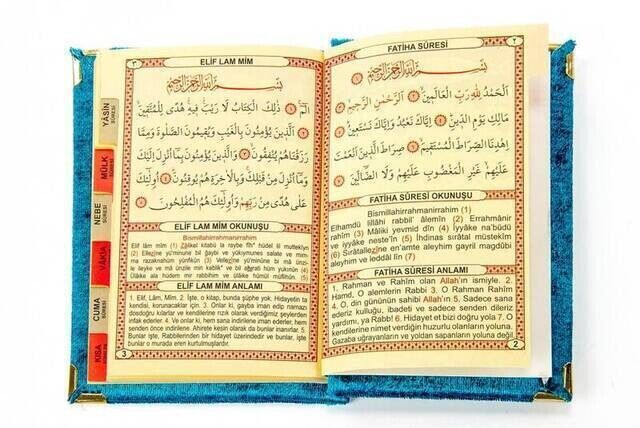 FATİHA SÛRESİ ٢
بِسْمِ اللّٰهِ الرَّحْمٰنِ الرَّحِيمِ
اَلْحَمْدُ لِلّٰهِ رَبِّ الْعَالَمِينَ اَلرَّحْمٰنِ الرَّحِيمِ
مَالِكِ يَوْمِ الدِّينِ اِيَّاكَ نَعْبُدُ وَاِيَّاكَ نَسْتَعِينُ
اِهْدِنَا الصِّرَاطَ الْمُسْتَقِيمَ صِرَاطَ الَّذِينَ اَنْعَمْتَ
عَلَيْهِمْ غَيْرِ الْمَغْضُوبِ عَلَيْهِمْ وَلَا الضَّالِّينَ
FATİHA SÛRESİ OKUNUŞU
Bismillahirrahmanirrahim (1)
Elhamdü lillâhi rabbil' âlemîn (2) Errahmânir
rahîm (3) Mâliki yevmid dîn (4) İyyâke na'büdü
ve iyyâke neste'în (5) İhdinas sırâtal müstekîm
(6) Sırâtallezîne en'amte aleyhim gayril magdûbi
aleyhim ve leddâl lîn (7)
FATİHA SÛRESİ ANLAMI
1. Rahman ve Rahîm olan Allah'ın ismiyle. 2.
Hamd, O alemlerin Rabbi 3. O Rahman Rahîm
4. O, din gününün sahibi Allah'ın 5. Sadece sana
ederiz kulluğu, ibadeti ve sadece senden dileriz
yardımı, ya Rabb! 6. Hidayet et bizi doğru yola 7. O
kendilerine nimet verdiğin huzurlu olanların yoluna.
Gazaba uğrayanların ve yoldan sapanların yoluna değil.
2
٣ ELİF LAM MİM
بِسْمِ اللّٰهِ الرَّحْمٰنِ الرَّحِيمِ
الٓمٓ ذٰلِكَ الْكِتَابُ لَا رَيْبَ فِيهِ هُدًى لِلْمُتَّقِينَ
اَلَّذِينَ يُؤْمِنُونَ بِالْغَيْبِ وَيُقِيمُونَ الصَّلٰوةَ وَمِمَّا
رَزَقْنَاهُمْ يُنْفِقُونَ وَالَّذِينَ يُؤْمِنُونَ بِمَٓا اُنْزِلَ اِلَيْكَ
وَمَٓا اُنْزِلَ مِنْ قَبْلِكَ وَبِالْاٰخِرَةِ هُمْ يُوقِنُونَ اُولٰٓئِكَ
عَلٰى هُدًى مِنْ رَبِّهِمْ وَاُولٰٓئِكَ هُمُ الْمُفْلِحُونَ
ELİF LAM MİM OKUNUŞU
Bismillahirrahmanirrahim
Elif lâm mîm (1) Zâlikel kitâbü la raybe fîh' hüdel lil muttekîyn
(2) Ellezîne yü'minune bil ğaybi ve yükıymunes salate ve mim-
ma razaknahüm yünfikûn (3) Vellezîne yü'minune bi mâ ünzi-
le ileyke ve mâ ünzile min kablik' ve bil ahırati hüm yûkınûn (4)
Ülâike ala hüdem mir rabbihim ve ülâike hümül müflihûn (5)
ELİF LAM MİM ANLAMI
1. Elif, Lâm, Mîm. 2. İşte, o kitap, bunda şüphe yok. Hidayetin ta
kendisi, korunacaklar için. 3. Onlar ki, gayba iman edip namazı
dosdoğru kılarlar ve kendilerine rızık olarak verdiğimiz şeylerden
infak ederler. 4. Ve onlar ki, hem sana indirilene iman ederler, hem
senden önce indirilene. Ahirete kesin olarak da bunlar inanırlar. 5.
Bunlar işte, Rabbilerinden bir hidayet üzerindedir ve bunlar, işte
bunlar o murada eren kurtulmuşlardır.
3
YÂSİN
SÛRESİ
MÜLK
SÛRESİ
NEBE
SÛRESİ
VAKIA
SÛRESİ
CUMA
SÛRESİ
KISA
SÛRELER